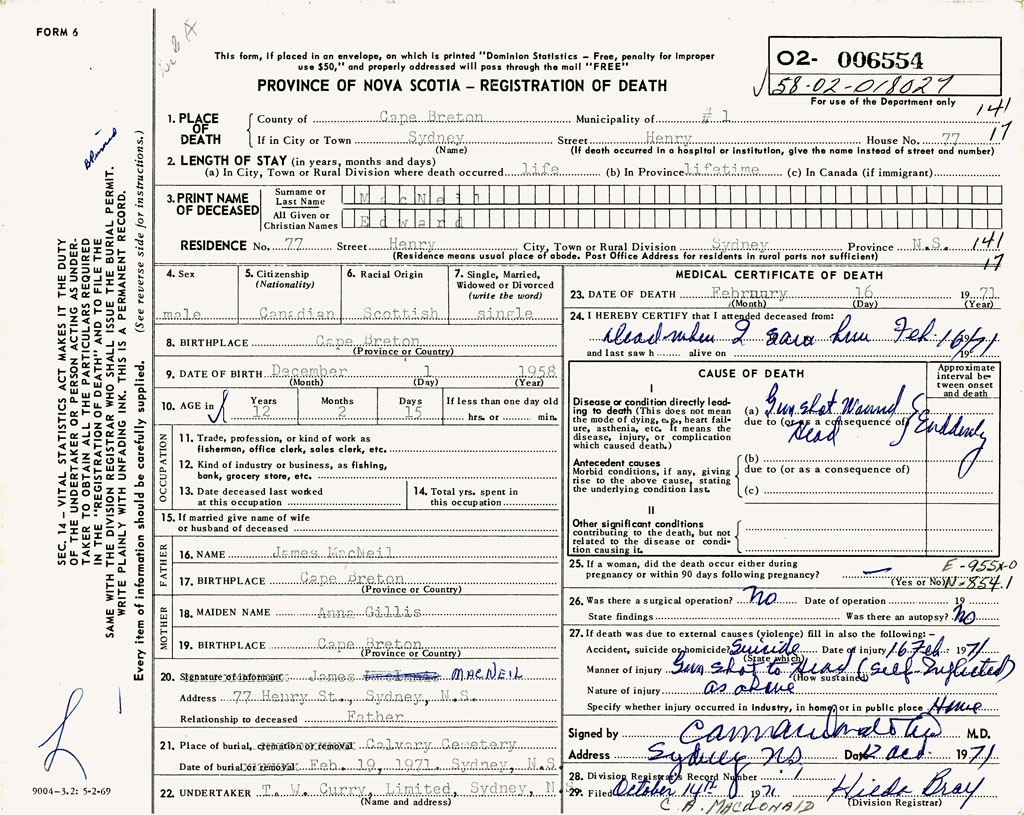 FORM 6
This form, if placed in an envelope, on which is printed "Dominion Statistics – Free, penalty for improper
use $50," and properly addressed will pass through the mail "FREE"
PROVINCE OF NOVA SCOTIA – REGISTRATION OF DEATH
02- 006554
58-02-018027
For use of the Department only
141
17
1. PLACE OF DEATH
County of Cape Breton Municipality of # 1
If in City or Town Sydney Street Henry House No. 77
(Name) (If death occurred in a hospital or institution, give the name instead of street and number)
2. LENGTH OF STAY (in years, months and days)
(a) In City, Town or Rural Division where death occurred life (b) In Province lifetime (c) In Canada (if immigrant)
3. PRINT NAME OF DECEASED
Surname or Last Name MacNeil
All Given or Christian Names Edward
RESIDENCE No. 77 Street Henry City, Town or Rural Division Sydney Province N.S.
(Residence means usual place of abode. Post Office Address for residents in rural parts not sufficient)
141
17
4. Sex
male
5. Citizenship
(Nationality)
Canadian
6. Racial Origin
Scottish
7. Single, Married,
Widowed or Divorced
(write the word)
single
8. BIRTHPLACE Cape Breton
(Province or Country)
9. DATE OF BIRTH December 1 1958
(Month) (Day) (Year)
10. AGE in
Years Months Days If less than one day old
12 2 15 hrs. or min.
OCCUPATION
11. Trade, profession, or kind of work as
fisherman, office clerk, sales clerk, etc.
12. Kind of industry or business, as fishing,
bank, grocery store, etc.
13. Date deceased last worked
at this occupation
14. Total yrs. spent in
this occupation
15. If married give name of wife
or husband of deceased
FATHER
16. NAME James MacNeil
17. BIRTHPLACE Cape Breton
(Province or Country)
MOTHER
18. MAIDEN NAME Anna Gillis
19. BIRTHPLACE Cape Breton
(Province or Country)
20. Signature of informant James MACNEIL
Address 77 Henry St., Sydney, N.S.
Relationship to deceased Father
21. Place of burial, cremation or removal Calvary Cemetery
Date of burial or removal Feb. 19, 1971. Sydney, N.S.
22. UNDERTAKER T. W. Curry, Limited, Sydney, N.S.
(Name and address)
MEDICAL CERTIFICATE OF DEATH
23. DATE OF DEATH February 16 1971
(Month) (Day) (Year)
24. I HEREBY CERTIFY that I attended deceased from:
Dead when I saw him Feb. 16/71
and last saw h alive on 19
CAUSE OF DEATH
Approximate
interval be-
tween onset
and death
I
Disease or condition directly lead-
ing to death (This does not mean
the mode of dying, e.g., heart fail-
ure, asthenia, etc. It means the
disease, injury, or complication
which caused death.)
(a) Gun shot Wound
due to (or as a consequence of)
Head
Suddenly
Antecedent causes
Morbid conditions, if any, giving
rise to the above cause, stating
the underlying condition last.
(b)
due to (or as a consequence of)
(c)
II
Other significant conditions
contributing to the death, but not
related to the disease or condi-
tion causing it.
25. If a woman, did the death occur either during
pregnancy or within 90 days following pregnancy? —
(Yes or No)
E-955X-0
N-854.1
26. Was there a surgical operation? No Date of operation 19
State findings Was there an autopsy? No
27. If death was due to external causes (violence) fill in also the following: –
Accident, suicide or homicide? Suicide Date of injury 16 Feb. 1971
(State which)
Manner of injury Gun shot to Head (Self Inflicted)
(How sustained)
Nature of injury as above
Specify whether injury occurred in industry, in home, or in public place Home
Signed by M.D.
Address Sydney NS Date 12 Oct. 1971
28. Division Registrar's Record Number
29. Filed October 14th 1971 Hilda Bray
(Division Registrar)
C. A. MACDONALD
SEC. 14 – VITAL STATISTICS ACT MAKES IT THE DUTY
OF THE UNDERTAKER OR PERSON ACTING AS UNDER-
TAKER TO OBTAIN ALL THE PARTICULARS REQUIRED
IN THE "REGISTRATION OF DEATH" AND TO FILE THE
SAME WITH THE DIVISION REGISTRAR WHO SHALL ISSUE THE BURIAL PERMIT.
WRITE PLAINLY WITH UNFADING INK. THIS IS A PERMANENT RECORD.
Every item of information should be carefully supplied. (See reverse side for instructions.)
9004-3.2: 5-2-69